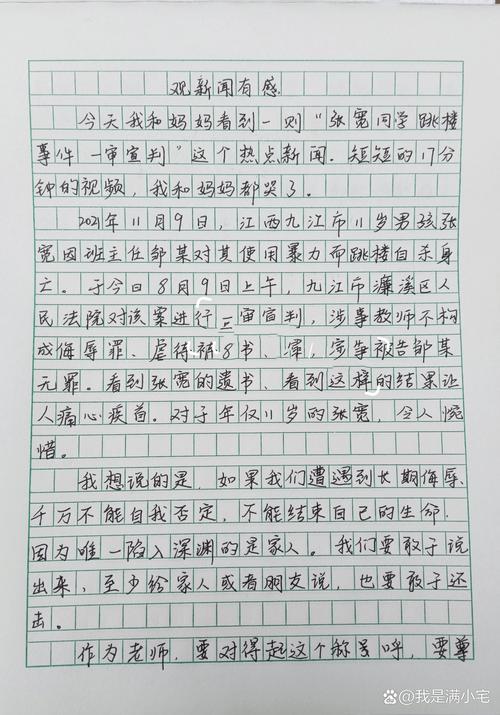 观新闻有感
今天我和妈妈看到一则“张宽同学跳楼
事件一审宣判”这个热点新闻.短短的17分
钟的视频,我和妈妈都哭了.
2021年11月9日,江西九江市11岁男孩张
宽因班主任邹某对其使用暴力而跳楼自杀身
亡.于今日8月9日上午,九江市濂溪区人
民法院对该案进行一审宣判,涉事教师不构
成侮辱罪、虐待被8书、军,涉事被告邹某
无罪.看到张宽的遗书、看到这样的结果让
人痛心疾首.对于年仅11岁的张宽,令人惋
惜.
我想说的是,如果我们遭遇到长期侮辱,
千万不能自我否定,不能结束自己的生命.
因为唯一陷入深渊的是家人.我们要敢于说
出来,至少给家人或者朋友说,也要敢于还
击.
作为老师,要对得起这个称号呼,要尊
头条@我是满小宅